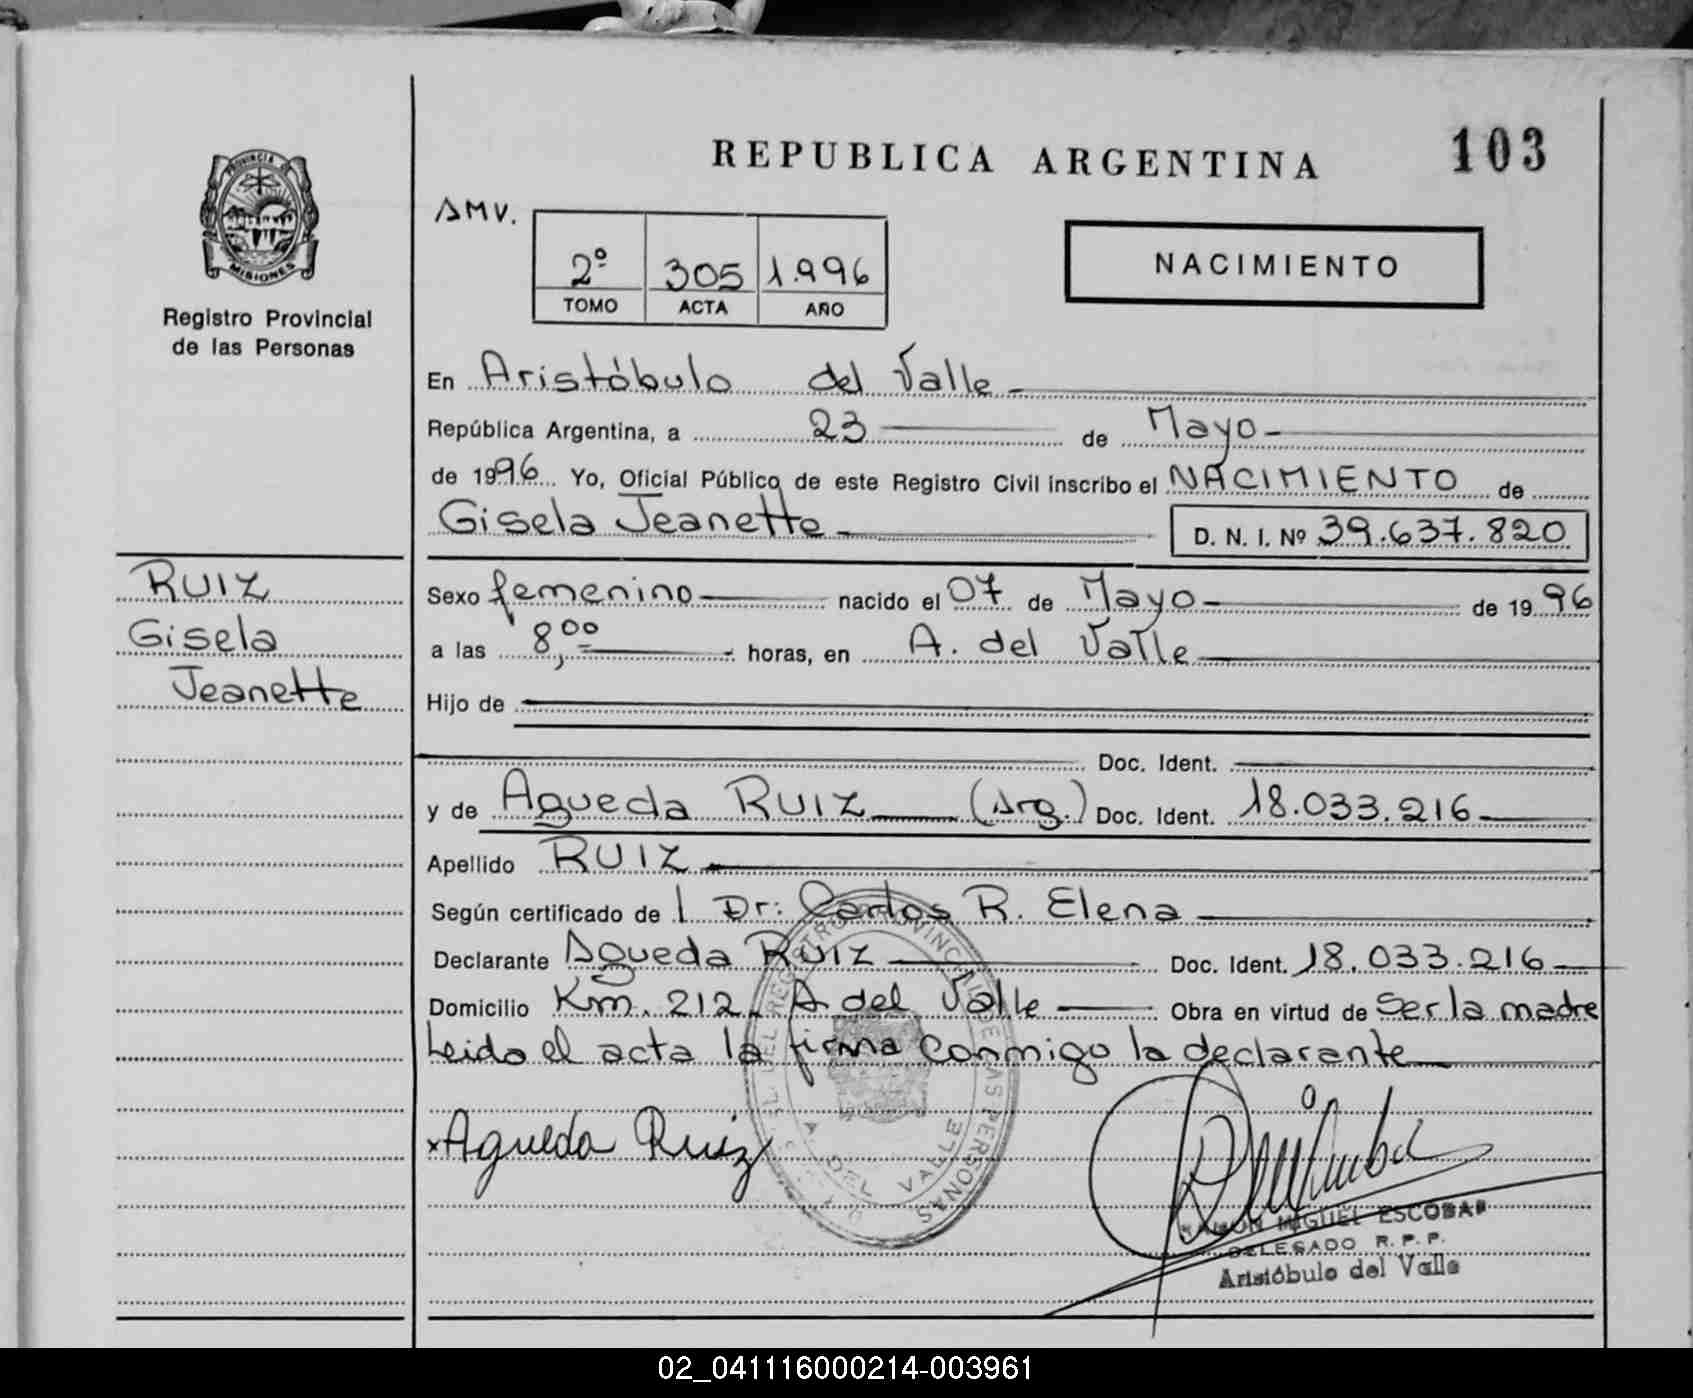 REPUBLICA ARGENTINA
103
PROVINCIA
MISIONES
Registro Provincial
de las Personas
AMV.
2º 305 1.996
TOMO ACTA AÑO
NACIMIENTO
En Aristóbulo del Valle
República Argentina, a 23 de Mayo
de 1996 Yo, Oficial Público de este Registro Civil inscribo el NACIMIENTO de
Gisela Jeanette D. N. I. Nº 39.637.820
RUIZ
Gisela
Jeanette
Sexo femenino nacido el 07 de Mayo de 1996
a las 8,00 horas, en A. del Valle
Hijo de
Doc. Ident.
y de Agueda RUIZ (Arg.) Doc. Ident. 18.033.216
Apellido RUIZ
Según certificado de l Dr: Carlos R. Elena
Declarante Agueda RUIZ Doc. Ident. 18.033.216
Domicilio Km. 212. A. del Valle Obra en virtud de Ser la madre
Leido el acta la firma conmigo la declarante
x Agueda Ruiz
A. DEL VALLE
RAMON MIGUEL ESCOBAR
DELEGADO R. P. P.
Aristóbulo del Valle
02_041116000214-003961